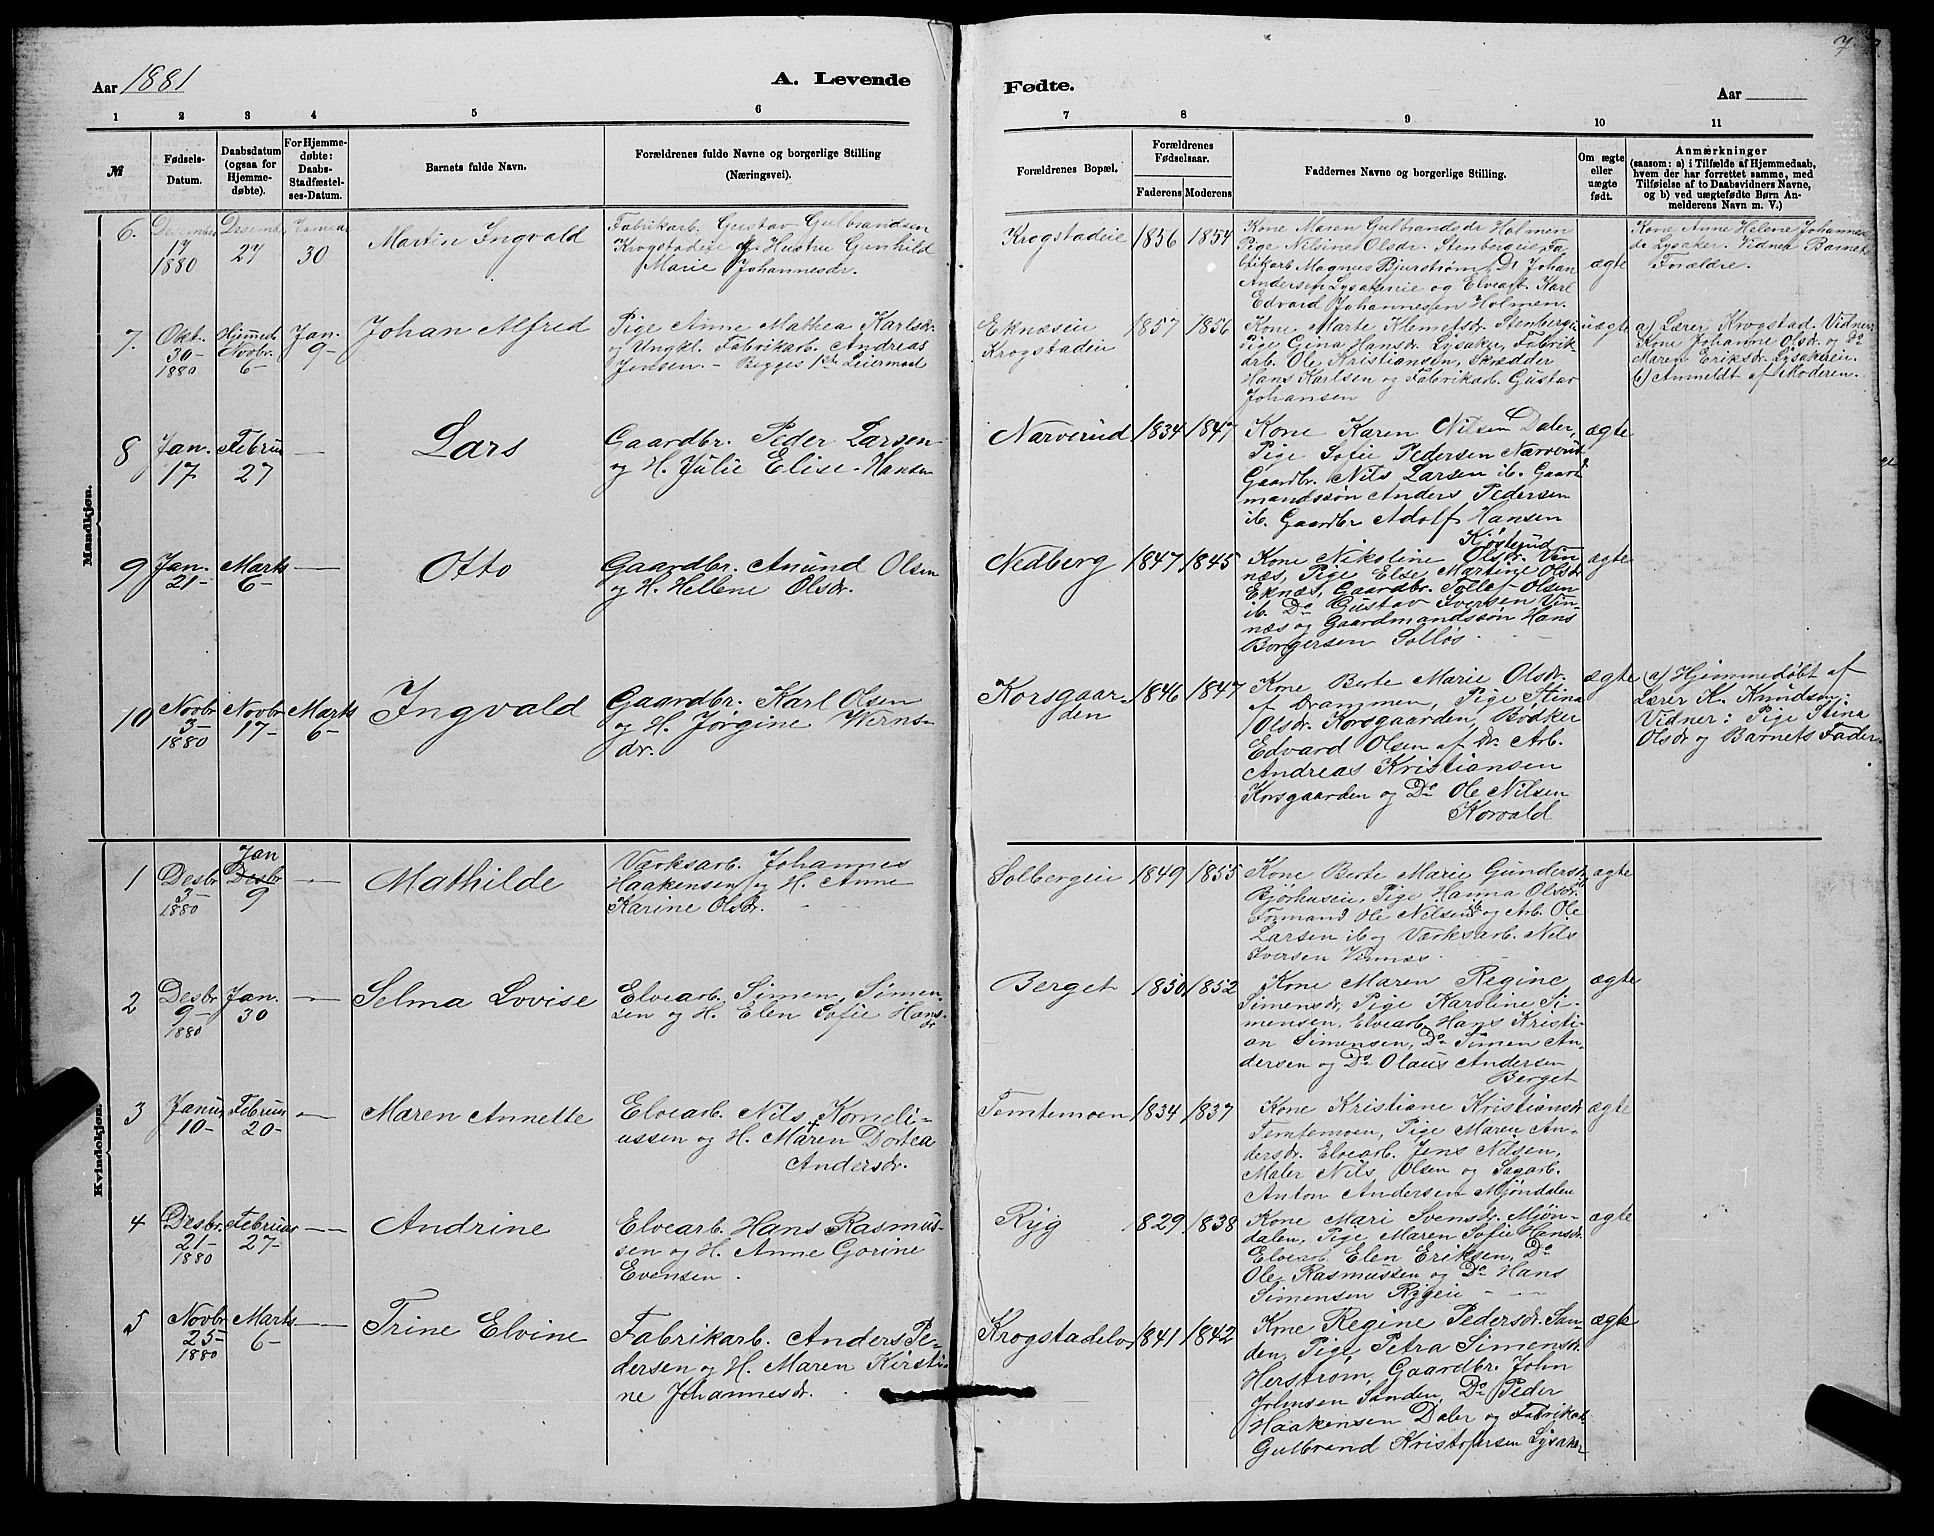 Aar 1881
A. Levende
Fødte.
Aar
7
1 2 3 4 5 6 7 8 9 10 11
№
Fødsels-
Datum.
Daabsdatum
(ogsaa for
Hjemme-
døbte).
For Hjemme-
døbte:
Daabs-
Stadfæstel-
ses-Datum.
Barnets fulde Navn.
Forældrenes fulde Navne og borgerlige Stilling
(Næringsvei).
Forældrenes Bopæl.
Forældrenes
Fødselsaar.
Faderens Moderens
Faddernes Navne og borgerlige Stilling.
Om ægte
eller
uægte
født.
Anmærkninger
(saasom: a) i Tilfælde af Hjemmedaab,
hvem der har forrettet samme, med
Tilføielse af to Daabsvidners Navne,
og b) ved uægtefødte Børn An-
melderens Navn m. V.)
Mandkjøn.
6.
Desember
17
1880
Desemb.
27
Januar
30
Martin Ingvald
Fabrikarb. Gustav Gulbrandsen
Krogstadeie og Hustru Gunhild
Marie Johannesdr.
Krogstadeie
1856 1854
Kone Maren Gulbrandsdr Holmen
Pige Nilsine Olsdr. Stenbergeie, Fa-
brikarb Magnus Bjurstrøm, Do Johan
Andersen Lysakereie og Elvearb. Karl
Edvard Johannesen Holmen.
ægte
Kone Anne Helene Johannes-
dr Lysaker. Vidner Barnets
Forældre.
7
Okt.
30-
1880
Hjemmed.
Novbr.
6-
Jan.
9-
Johan Alfred
Pige Anne Mathea Karlsdr.
og Ungkl. Fabrikarb. Andreas
Jensen. - Begges 1ste Leiermaal
Eknæseie
Krogstadeie
1857 1856
Kone Marte Klemetsdr. Stenbergei
Pige Gina Hansdr. Lysaker, Fabrik-
arb. Ole Kristiansen, Skrædder
Hans Karlsen og Fabrikarb. Gustav
Johansen
uægte
a) Lærer Krogstad. Vidner
Kone Johanne Olsdr. og Do
Maren Eriksdr. Lysakereie.
b) Anmeldt af Moderen.
8
Jan.
17
Februar
27
Lars
Gaardbr. Peder Larsen
og H. Julie Elise Hansen
Narverud
1834 1847
Kone Karen Nilsen Daler,
Pige Sofie Pedersen Narverud
Gaardbr. Nils Larsen ib. Gaard-
mandssøn Anders Pedersen
ib. Gaardbr Adolf Hansen
Kjøsterud
ægte
9
Jan.
21-
Marts
6-
Otto
Gaardbr. Amund Olsen
og H. Hellene Olsdr.
Nedberg
1847 1845
Kone Nikoline Olsdr. Vin-
næs, Pige Else Martine Olsdr
Eknæs, Gaardbr. Tollef Olsen
ib. Do Gustav Iversen Vin-
næs og Gaardmandssøn Hans
Borgersen Solløs
ægte
10
Novbr
3-
1880
Novbr
17-
Marts
6-
Ingvald
Gaardbr. Karl Olsen
og H. Jørgine Werns-
dr.
Korsgaar-
den
1846 1847
Kone Berte Marie Olsdr.
af Drammen, Pige Stina
Olsdr. Korsgaarden, Bødker
Edvard Olsen af Dr. Arb.
Andreas Kristiansen
Korsgaarden og Do Ole Nilsen
Korvald
ægte
a) Hjemmedøbt af
Lærer K. Knudsen.
Vidner: Pige Stina
Olsdr og Barnets Fader.
Kvindekjøn.
1
Desbr
3-
1880
Jan
Desbr
9
Mathilde
Værksarb. Johannes
Haakensen og H. Anne
Karine Olsdr.
Solbergeie
1849 1855
Kone Berte Marie Gundersdr
Bjørhuseie, Pige Hanna Olsdr. ib
Formand Ole Nilsen ib og Arb. Ole
Larsen ib og Værksarb. Nils
Iversen Vinnæs
ægte
2
Desbr
9-
1880
Jan.
30
Selma Lovise
Elvearb. Simen Simen-
sen og H. Elen Sofie Hans-
dr
Berget
1850 1852
Kone Maren Regine
Simensdr, Pige Karoline Si-
mensen, Elvearb Hans Kristi-
an Simensen, Do Simen An-
dersen og Do Olaus Andersen
Berget
ægte
3
Januar
10-
Februar
20-
Maren Annette
Elvearb. Nils Korneli-
ussen og H. Maren Dortea
Andersdr.
Temtemoen
1834 1837
Kone Kristiane Kristiansdr
Temtemoen, Pige Maren An-
dersdr. Elvearb. Jens Nilsen,
Maler Nils Olsen og Sagarb.
Anton Andersen Mjøndalen
ægte
4
Desbr.
21-
1880
Februar
27-
Andrine
Elvearb. Hans Rasmus-
sen og H. Anne Gorine
Evensen.
Ryg
1829 1838
Kone Mari Svensdr. Mjøn-
dalen, Pige Maren Sofie Hansdr.
Elvearb Elen Eriksen, Do
Ole Rasmussen og Do Hans
Simensen Rygeie
ægte
5
Novbr
25-
1880
Marts
6-
Trine Elvine
Fabrikarb. Anders Pe-
dersen og H. Maren Kirsti-
ne Johannesdr.
Krogstadelv
1841 1842
Kone Regine Pedersdr. San-
den, Pige Petra Simensdr.
Herstrøm, Gaardbr. John
Johnsen Sanden, Do Peder
Haakensen Daler og Fabrikarb
Gulbrand Kristofersen Lysaker
ægte